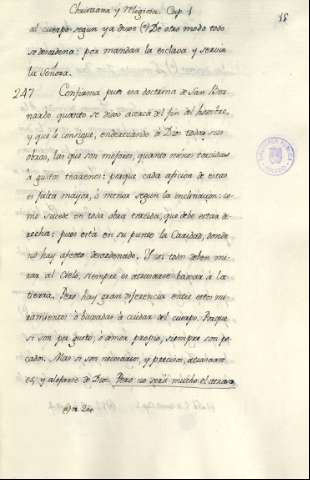 Christiana y Religiosa. Cap. 1
15
al cuerpo segun ya dixe (*) De otro modo todo
se desordena: por mandar la esclava y servir
la Señora.
247 Confirma pues esa doctrina de San Ber-
nardo quanto se dixo acerca del fin del hombre,
y que le consigue, enderezando à Dios todas sus
obras, las que son mejores, quanto menos torcidas
à gustos: porque cada aficion de estos
es falta mayor, ò menor segun la inclinacion: co-
mo sucede en toda obra torcida, que debe estar de-
recha: pues está en su punto la Caridad, donde
no hay afecto desordenado. Y así todos deben mi-
rar al Cielo, siempre es atrasarse baxar à la
tierra. Pero hay gran diferencia entre estos mi-
ramientos: ò baxadas à cuidar del cuerpo. Porque
si son por gusto, ò amor propio, siempre son pe-
cados. Mas si son necesarios, y precisos, atrasarse
es, y alejarse de Dios. Pero no será mucho el atraso,
(*) n. 240